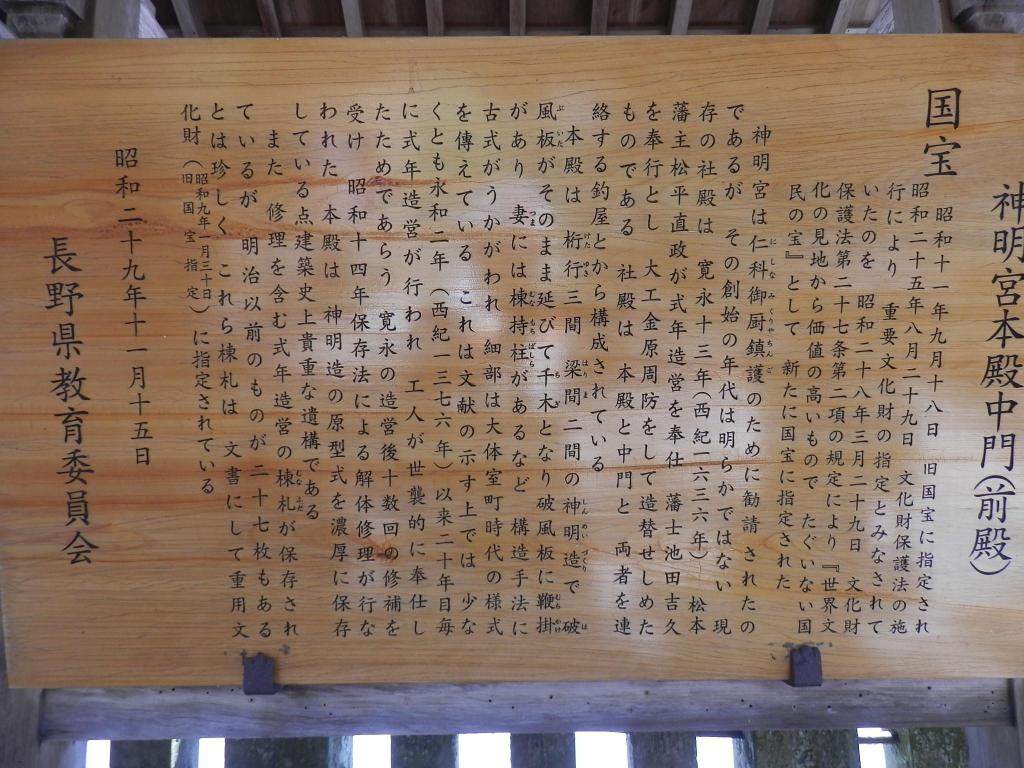 神明宮本殿中門(前殿)
国宝
昭和十一年九月十八日 旧国宝に指定され
昭和二十五年八月二十九日 文化財保護法の施
行により 重要文化財の指定とみなされて
いたのを 昭和二十八年三月二十九日 文化財
保護法第二十七条第二項の規定により『世界文
化の見地から価値の高いもので たぐいない国
民の宝』として 新たに国宝に指定された
神明宮は仁科御厨鎮護のために勧請されたの
であるが その創始の年代は明らかではない 現
存の社殿は 寛永十三年(西紀一六三六年) 松本
藩主松平直政が式年造営を奉仕 藩士池田吉久
を奉行とし 大工金原周防をして造替せしめた
ものである 社殿は 本殿と中門と 両者を連
絡する釣屋とから構成されている
本殿は 桁行三間 梁間二間の神明造で 破
風板がそのまま延びて千木となり破風板に鞭掛
があり 妻には棟持柱があるなど 構造手法に
古式がうかがわれ 細部は大体室町時代の様式
を傳えている これは文献の示す上では 少な
くとも永和二年(西紀一三七六年)以来二十年目毎
に式年造営が行われ 工人が世襲的に奉仕し
たためであらう 寛永の造営後十数回の修補を
受け 昭和十四年保存法による解体修理が行な
われた 本殿は 神明造の原型式を濃厚に保存
している点建築史上貴重な遺構である
また 修理を含む式年造営の棟札が保存され
ているが 明治以前のものが 二十七枚もある
とは珍しく これら棟札は 文書にして重用文
化財(昭和九年一月三十日旧国宝指定)に指定されている
昭和二十九年十一月十五日
長野県教育委員会